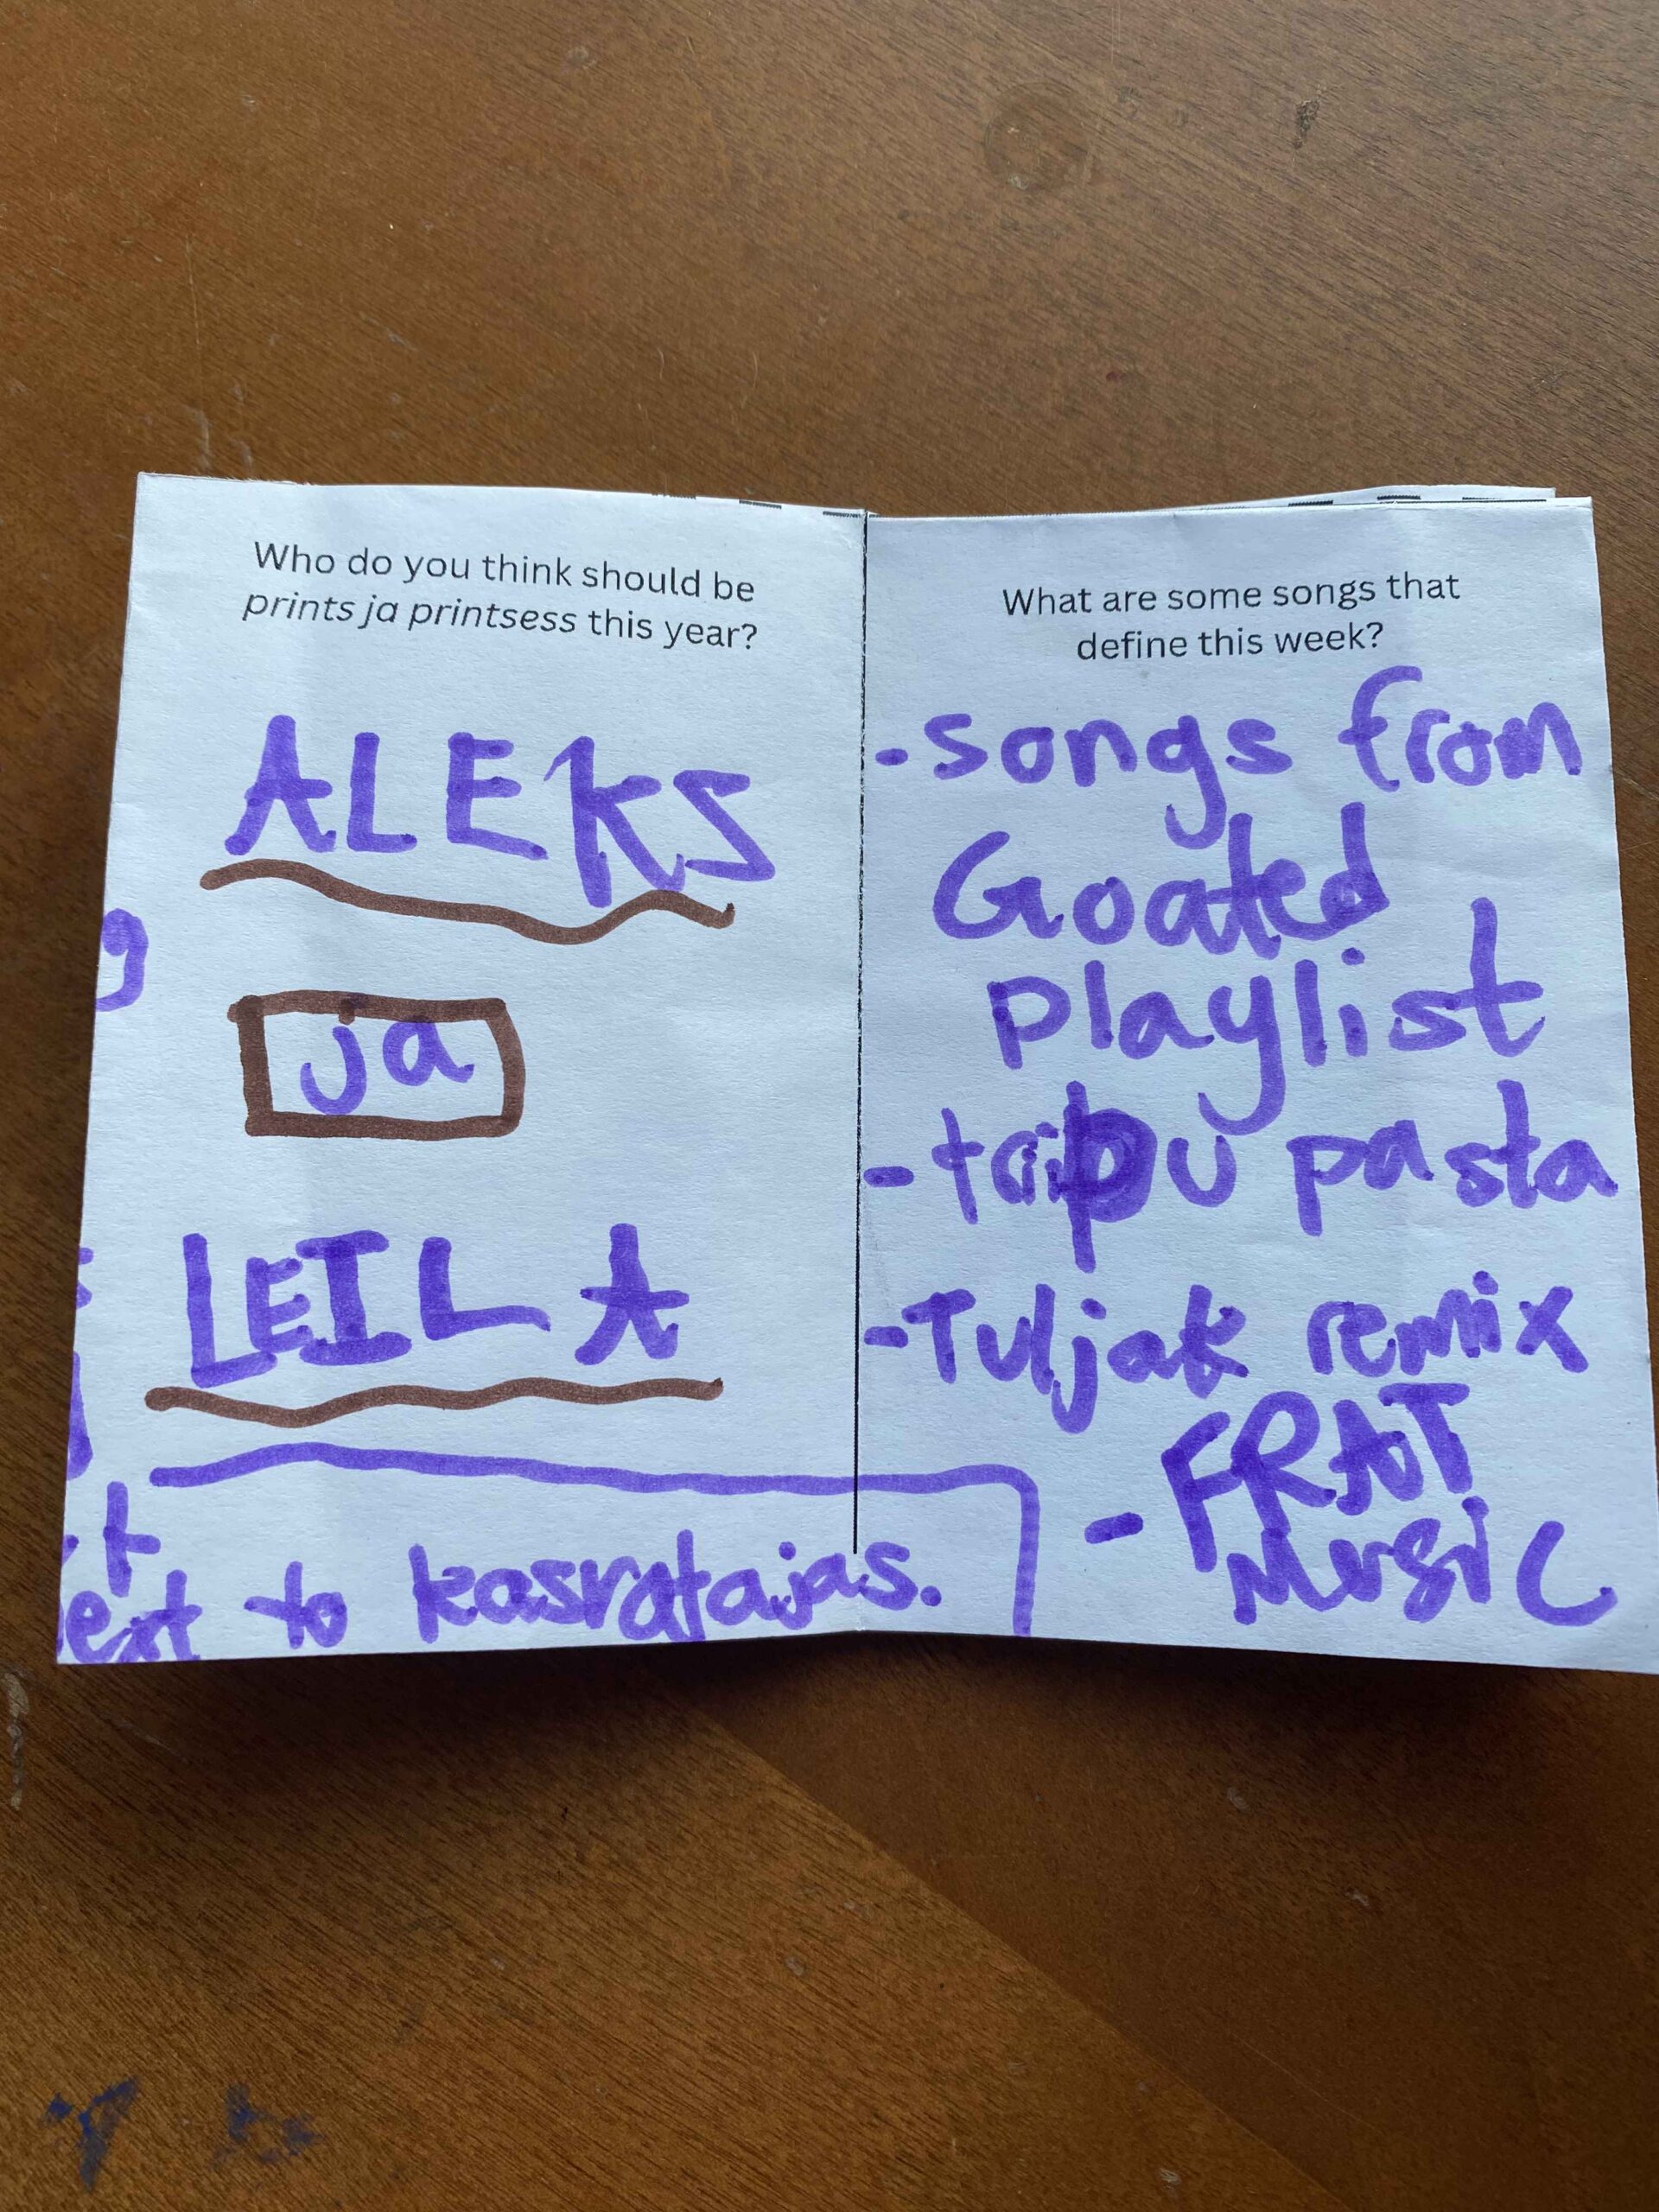 Who do you think should be
prints ja printsess this year?
ALEKS
ja
LEILA
to kasvatajas.
What are some songs that
define this week?
-songs from
Goated
playlist
- pasta
-Tuljak remix
-FRAT
MUSiC